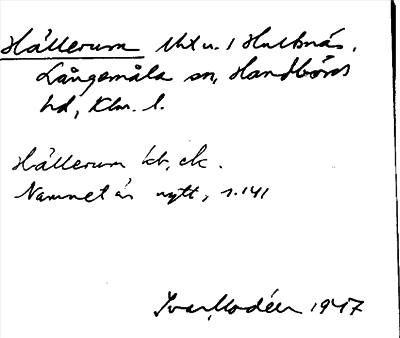 Hällerum lht u. 1 Hultsnäs,
Långemåla sn, Handbörds
hd, Klm. l.
Hällerum kb, ek.
Namnet är nytt, s. 141
Ivar Modéer 1947